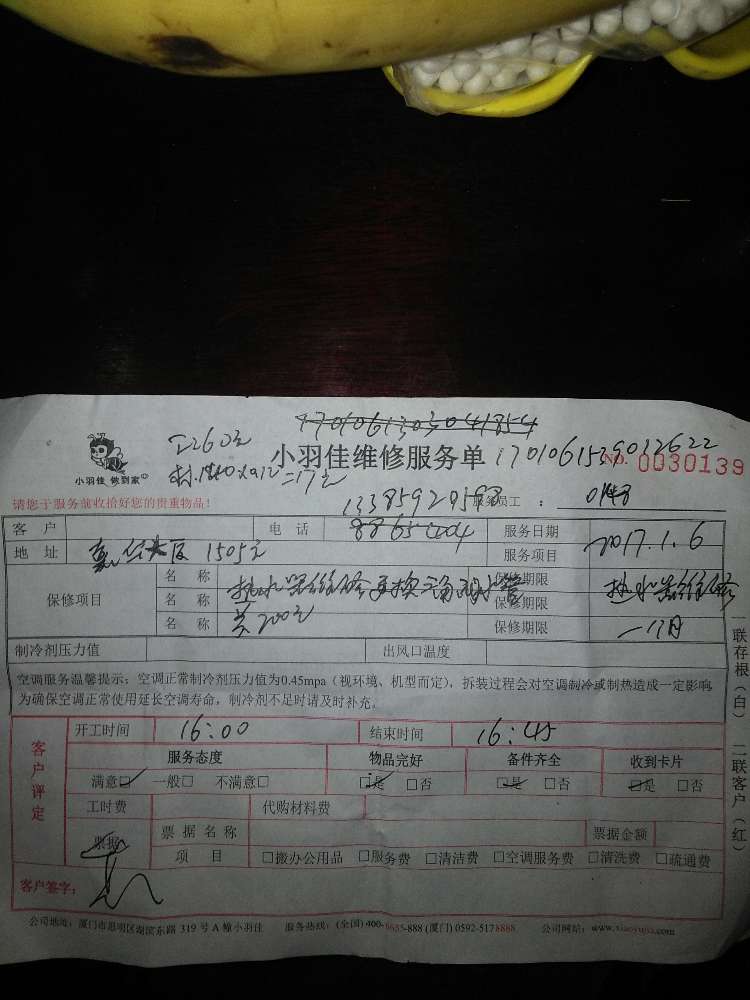 1701061303041854
工260元
小羽佳维修服务单
1701061539012622
No. 0030139
小羽佳 做到家
材:140×0.12=17元
请您于服务前收拾好您的贵重物品!
服务员工 : 0148
客 户
电 话
服务日期
2017.1.6
地 址
1505元
服务项目
热水器维修
保修项目
名 称
热水器维修更换三角阀水管
保修期限
名 称
保修期限
名 称
共200元
保修期限
一个月
制冷剂压力值
出风口温度
空调服务温馨提示:空调正常制冷剂压力值为0.45mpa(视环境、机型而定),拆装过程会对空调制冷或制热造成一定影响
为确保空调正常使用延长空调寿命,制冷剂不足时请及时补充。
客户评定
开工时间
16:00
结束时间
16:45
服务态度
物品完好
备件齐全
收到卡片
满意☑ 一般□ 不满意□
☑是 □否
☑是 □否
☑是 □否
工时费
代购材料费
票据
票 据 名 称
票据金额
项 目
□搬办公用品 □服务费 □清洁费 □空调服务费 □清洗费 □疏通费
客户签字:
公司地址:厦门市思明区湖滨东路 319 号 A 幢小羽佳
服务热线:(全国)400-8655-888 (厦门)0592-5178888
公司网站:www.xiaoyujia.com
一联存根(白) 二联客户(红)